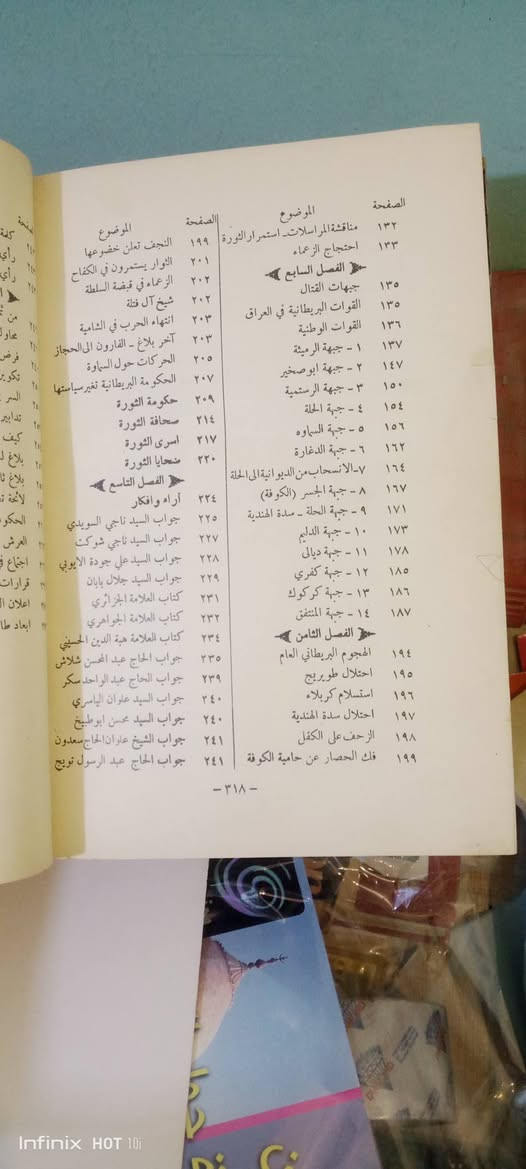 الموضوع الصفحة
مناقشة المراسلات ـ استمرار الثورة ١٣٢
احتجاج الزعماء ١٣٣
الفصل السابع
جبهات القتال ١٣٥
القوات البريطانية في العراق ١٣٥
القوات الوطنية ١٣٦
١ ـ جبهة الرميثة ١٣٧
٢ ـ جبهة ابو صخير ١٤٧
٣ ـ جبهة الرستمية ١٥٠
٤ ـ جبهة الحلة ١٥٤
٥ ـ جبهة السماوه ١٥٦
٦ ـ جبهة الدغارة ١٦٢
٧ ـ الانسحاب من الديوانية الى الحلة ١٦٤
٨ ـ جبهة الجسر (الكوفة) ١٦٧
٩ ـ جبهة الحلة ـ سدة الهندية ١٧١
١٠ ـ جبهة الدليم ١٧٣
١١ ـ جبهة ديالى ١٧٨
١٢ ـ جبهة كفري ١٨٥
١٣ ـ جبهة كركوك ١٨٦
١٤ ـ جبهة المنتفق ١٨٧
الفصل الثامن
الهجوم البريطاني العام ١٩٤
احتلال طويريج ١٩٥
استسلام كربلاء ١٩٦
احتلال سدة الهندية ١٩٧
الزحف على الكفل ١٩٨
فك الحصار عن حامية الكوفة ١٩٩
الموضوع الصفحة
النجف تعلن خضوعها ١٩٩
الثوار يستمرون في الكفاح ٢٠١
الزعماء في قبضة السلطة ٢٠٢
شيخ آل فتلة ٢٠٢
انتهاء الحرب في الشامية ٢٠٣
آخر بلاغ ـ الفارون الى الحجاز ٢٠٣
الحركات حول السماوة ٢٠٥
الحكومة البريطانية تغير سياستها ٢٠٧
حكومة الثورة ٢٠٩
صحافة الثورة ٢١٤
اسرى الثورة ٢١٧
ضحايا الثورة ٢٢٠
الفصل التاسع
آراء وافكار ٢٢٤
جواب السيد ناجي السويدي ٢٢٥
جواب السيد ناجي شوكت ٢٢٧
جواب السيد علي جودة الايوبي ٢٢٨
جواب السيد جلال بابان ٢٢٩
كتاب العلامة الجزائري ٢٣١
كتاب العلامة الجواهري ٢٣٢
كتاب العلامة هبة الدين الحسيني ٢٣٤
جواب الحاج عبد المحسن شلاش ٢٣٥
جواب الحاج عبد الواحد سكر ٢٣٩
جواب السيد علوان الياسري ٢٤٠
جواب السيد محسن ابو طبيخ ٢٤٠
جواب الشيخ علوان الحاج سعدون ٢٤١
جواب الحاج عبد الرسول تويج ٢٤١
ـ ٣١٨ ـ
Infinix HOT 10i